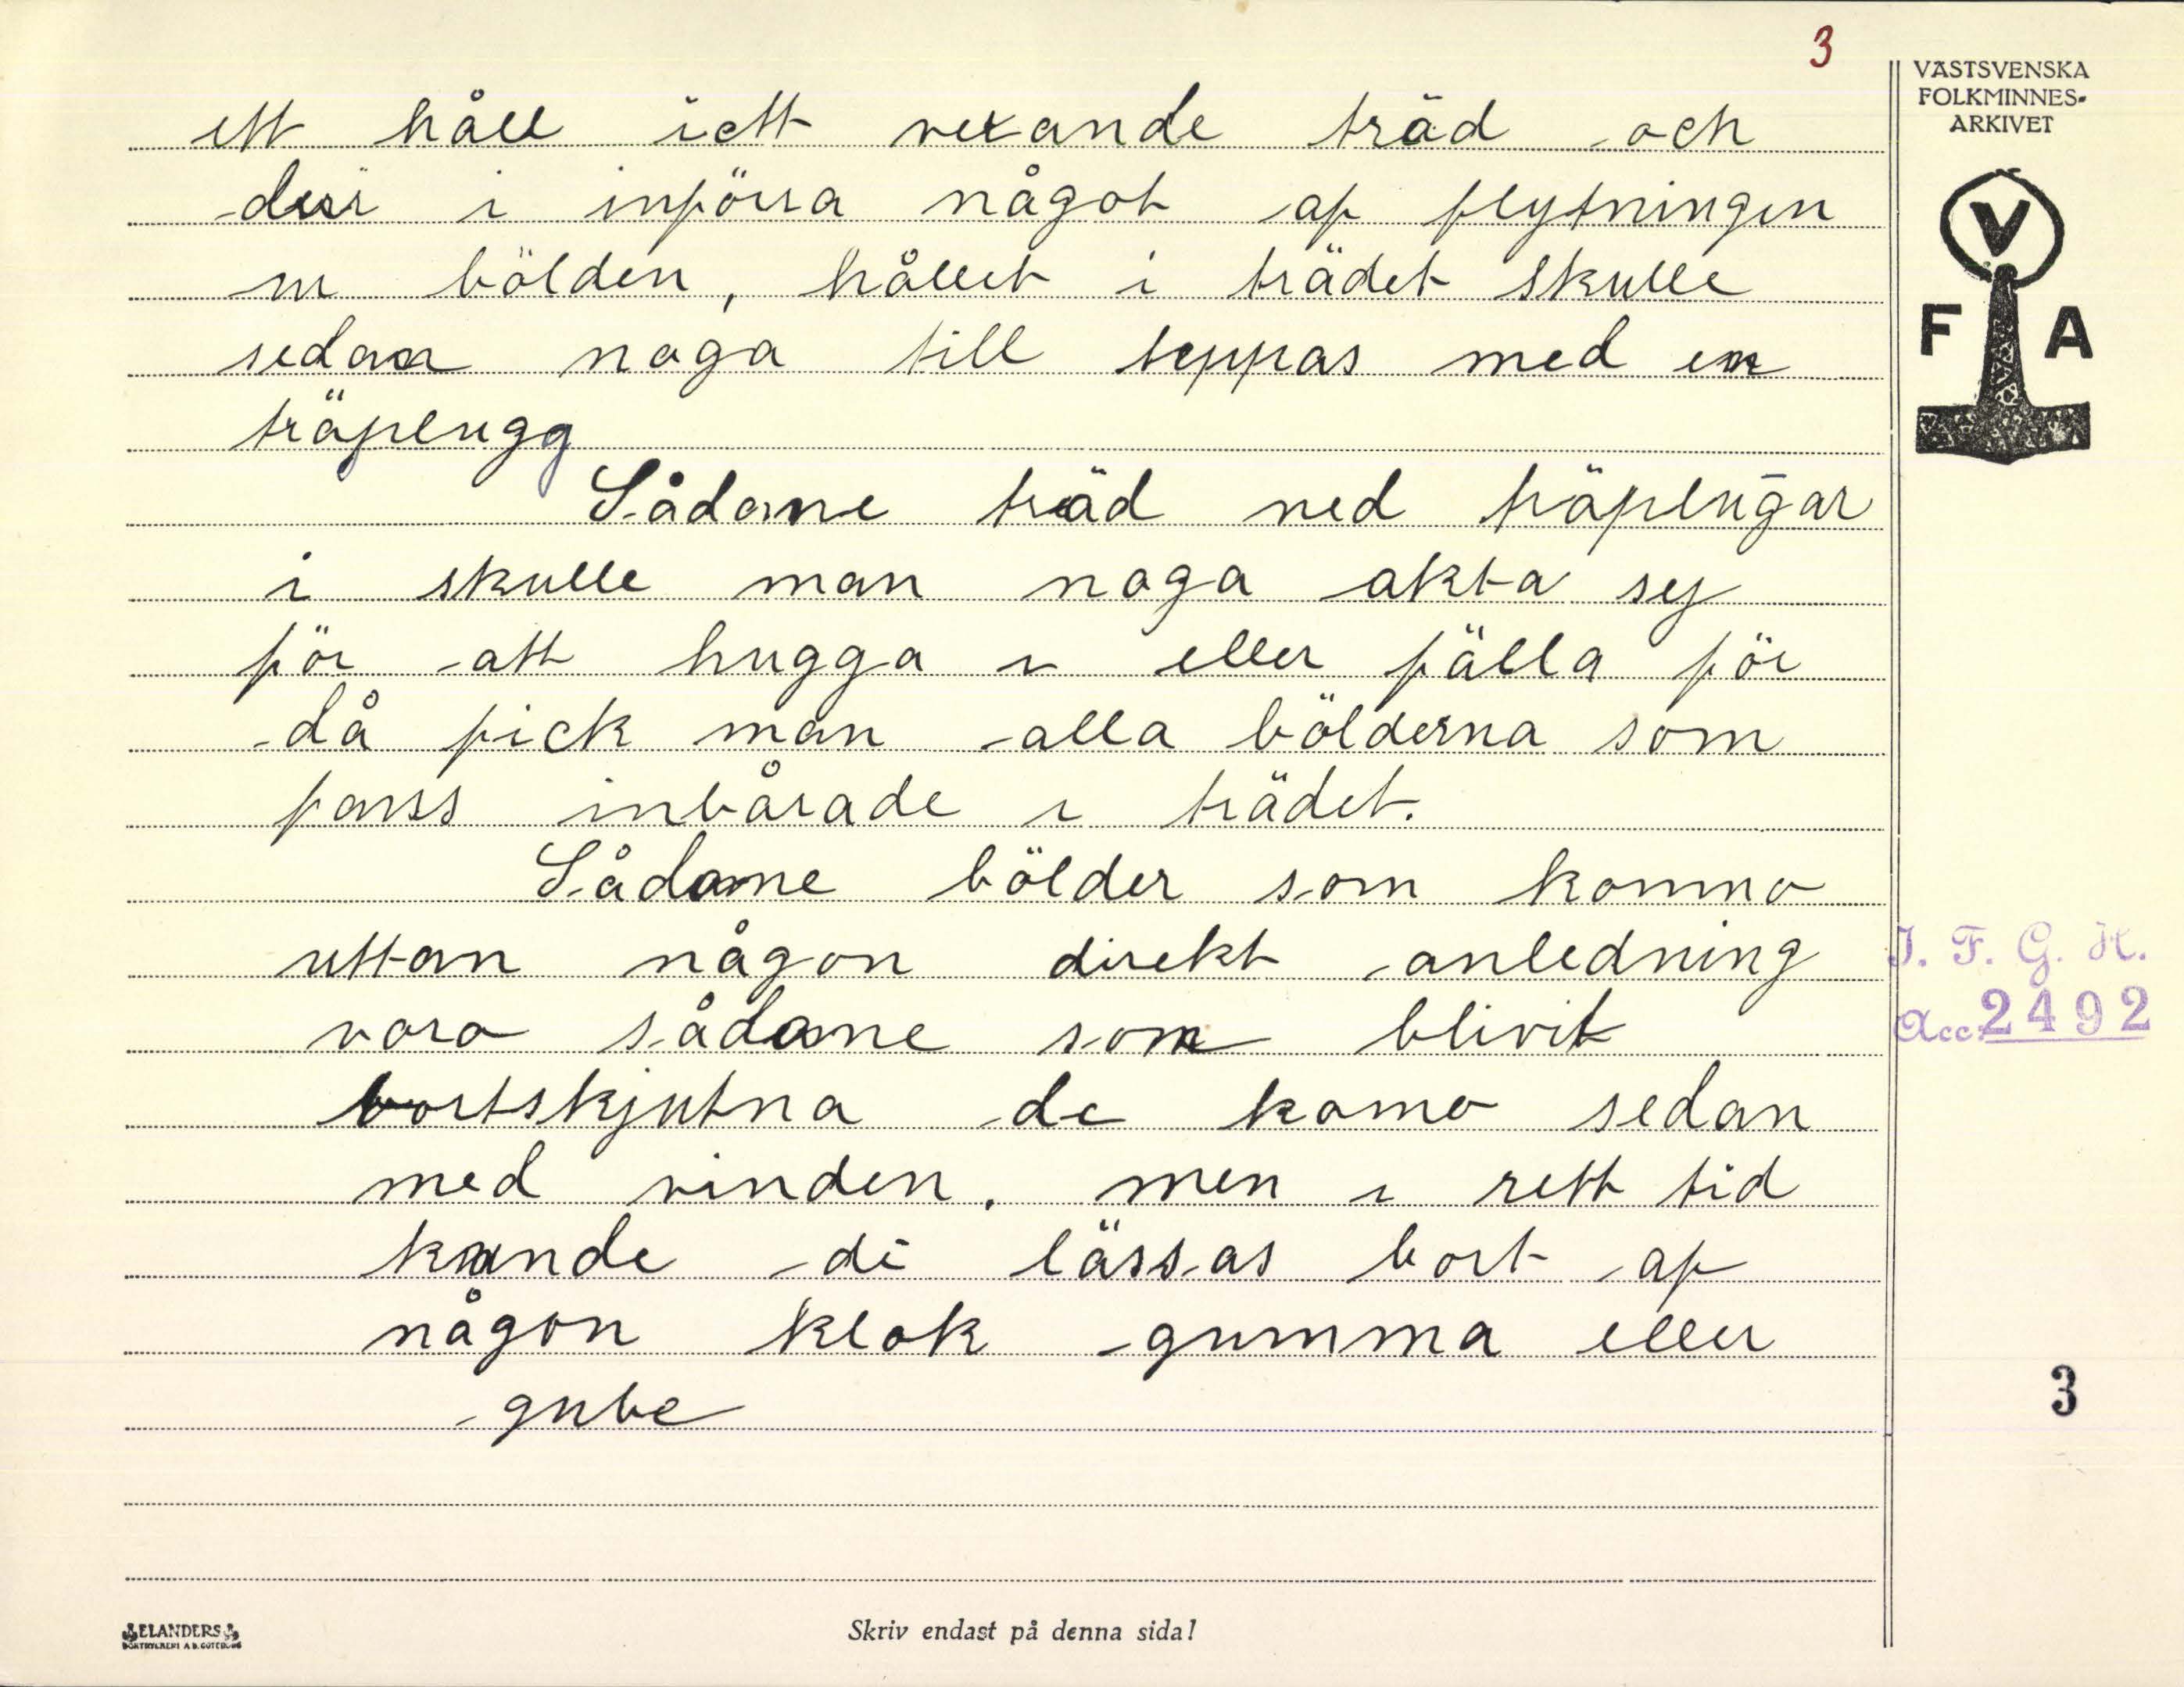 3
VÄSTSVENSKA
FOLKMINNES-
ARKIVET
V
F A
ett håll i ett vexande träd och
der i införra något af flytningen
ur bölden, hållet i trädet skulle
sedan noga till teppas med en
träplugg
Sådane träd med träplug̅ar
i skulle man noga akta sej
för att hugga i eller fälla för
då fick man alla bölderna som
fanss inbårade i trädet.
Sådane bölder som kommo
uttan någon direkt anledning
voro sådane som blivit
bortskjutna de komo sedan
med vinden. men i rett tid
kunde di lässas bort af
någon klok gumma eller
gube
I. F. G. H.
Acc. 2492
3
ELANDERS
BOKTRYCKERI A.B. GÖTEBORG
Skriv endast på denna sida!